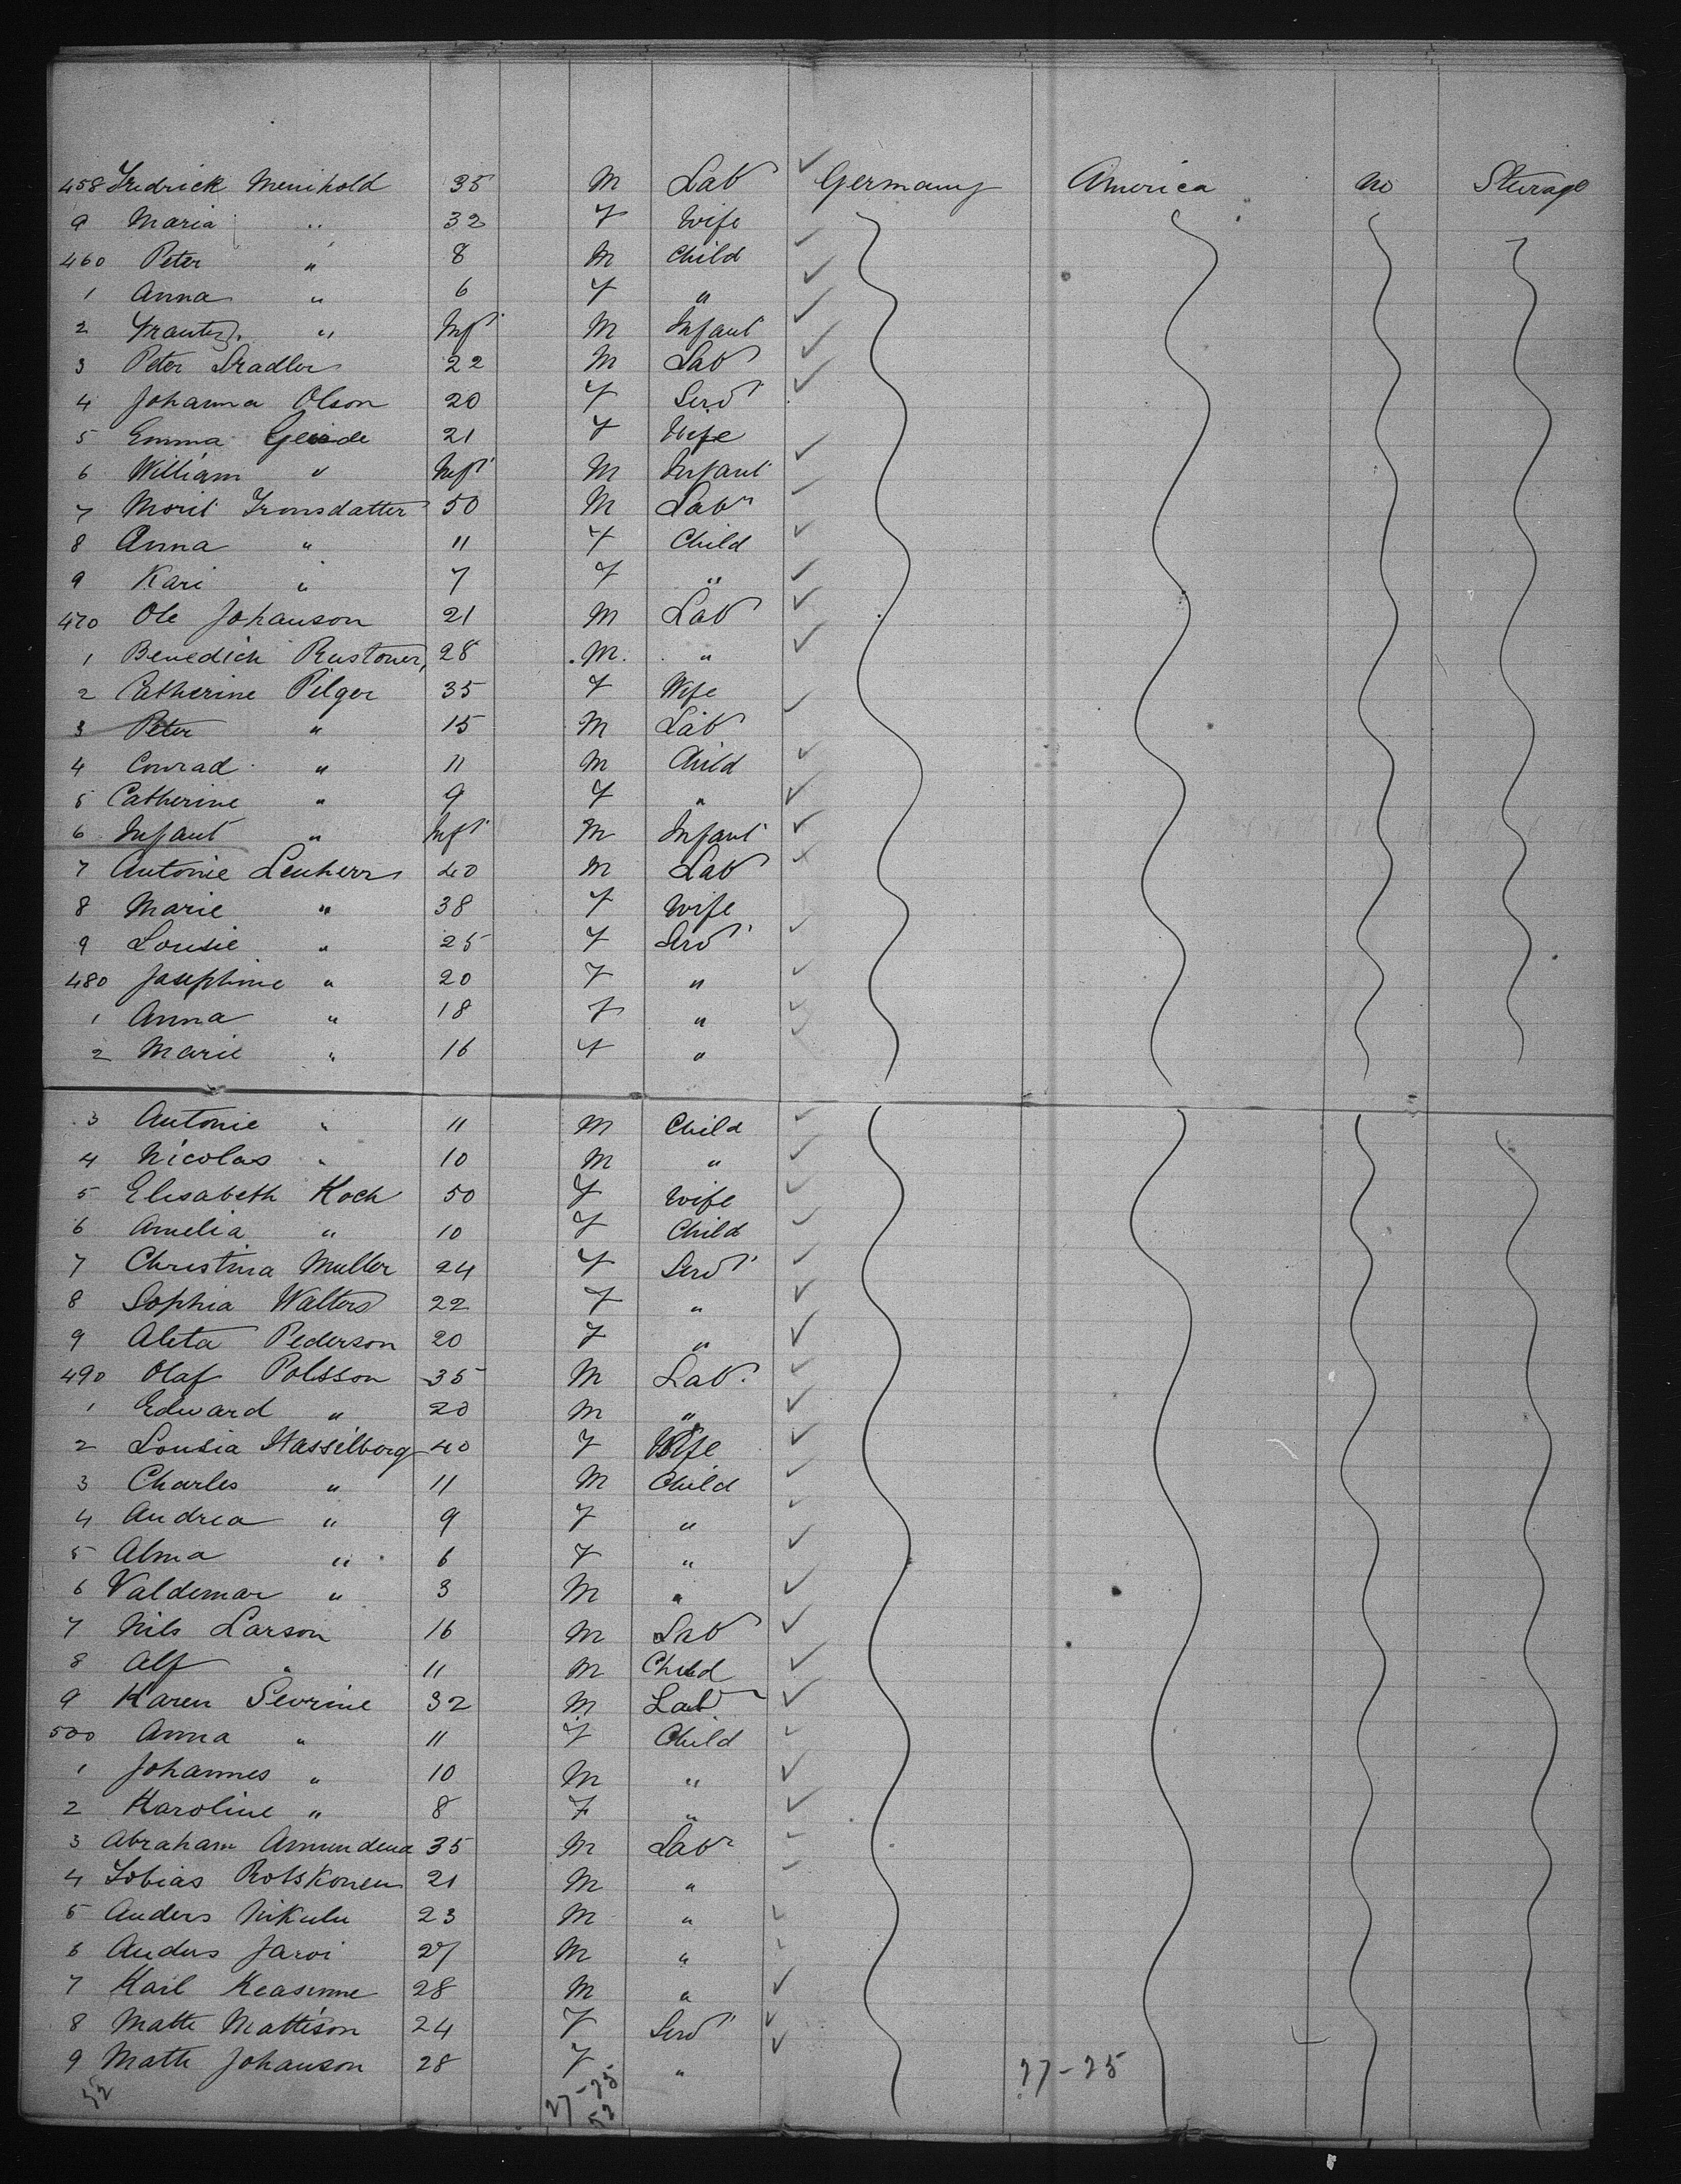 458 Fredrick Menihold 35 M Lab ✓ Germany America no Sturage
9 Maria " 32 F Wife
460 Peter " 8 M Child ✓
1 Anna " 6 F " ✓
2 " Inft M Infant ✓
3 Peter Stradler 22 M Lab ✓
4 Johanna Olson 20 F Serv ✓
5 Emma 21 F Wife
6 William " Inft M Infant ✓
7 Morit 50 M Labr ✓
8 Anna " 11 F Child ✓
9 Kari " 7 F " ✓
470 Ole Johanson 21 M Lab ✓
1 Benedich 28 M " ✓
2 Catherine Pilger 35 F Wife
3 Peter " 15 M Lab ✓
4 Conrad " 11 M Child ✓
5 Catherine " 9 F " ✓
6 Infant " Inft M Infant ✓
7 Antonie Lenherr 40 M Lab ✓
8 Marie " 38 F Wife
9 Lousie " 25 F Serv ✓
480 Josephine " 20 F " ✓
1 Anna " 18 F " ✓
2 Marie " 16 F " ✓
3 Antonie " 11 M Child ✓
4 Nicolas " 10 M " ✓
5 Elisabeth Koch 50 F Wife ✓
6 Amelia " 10 F Child ✓
7 Christina Muller 24 F Serv ✓
8 Sophia Walters 22 F " ✓
9 Aleta Pederson 20 F " ✓
490 Olaf Polsson 35 M Lab. ✓
1 Edward " 20 M " ✓
2 Lousia Hasselberg 40 F Wife ✓
3 Charles " 11 M Child ✓
4 Andrea " 9 F " ✓
5 Alma " 6 F " ✓
6 Valdemar " 3 M " ✓
7 Nils Larson 16 M Lab ✓
8 Alf " 11 M Child ✓
9 Karen Sevrine 32 M Lab ✓
500 Anna " 11 F Child ✓
1 Johannes " 10 M " ✓
2 Karoline " 8 F " ✓
3 Abraham 35 M Labr ✓
4 Tobias 21 M " ✓
5 Anders Nikulu 23 M " ✓
6 Andus Jarvi 27 M " ✓
7 Karl 28 M " ✓
8 Matte Mattison 24 F Serv ✓
9 Matte Johanson 28 F " ✓
27-25
52 27-25
52